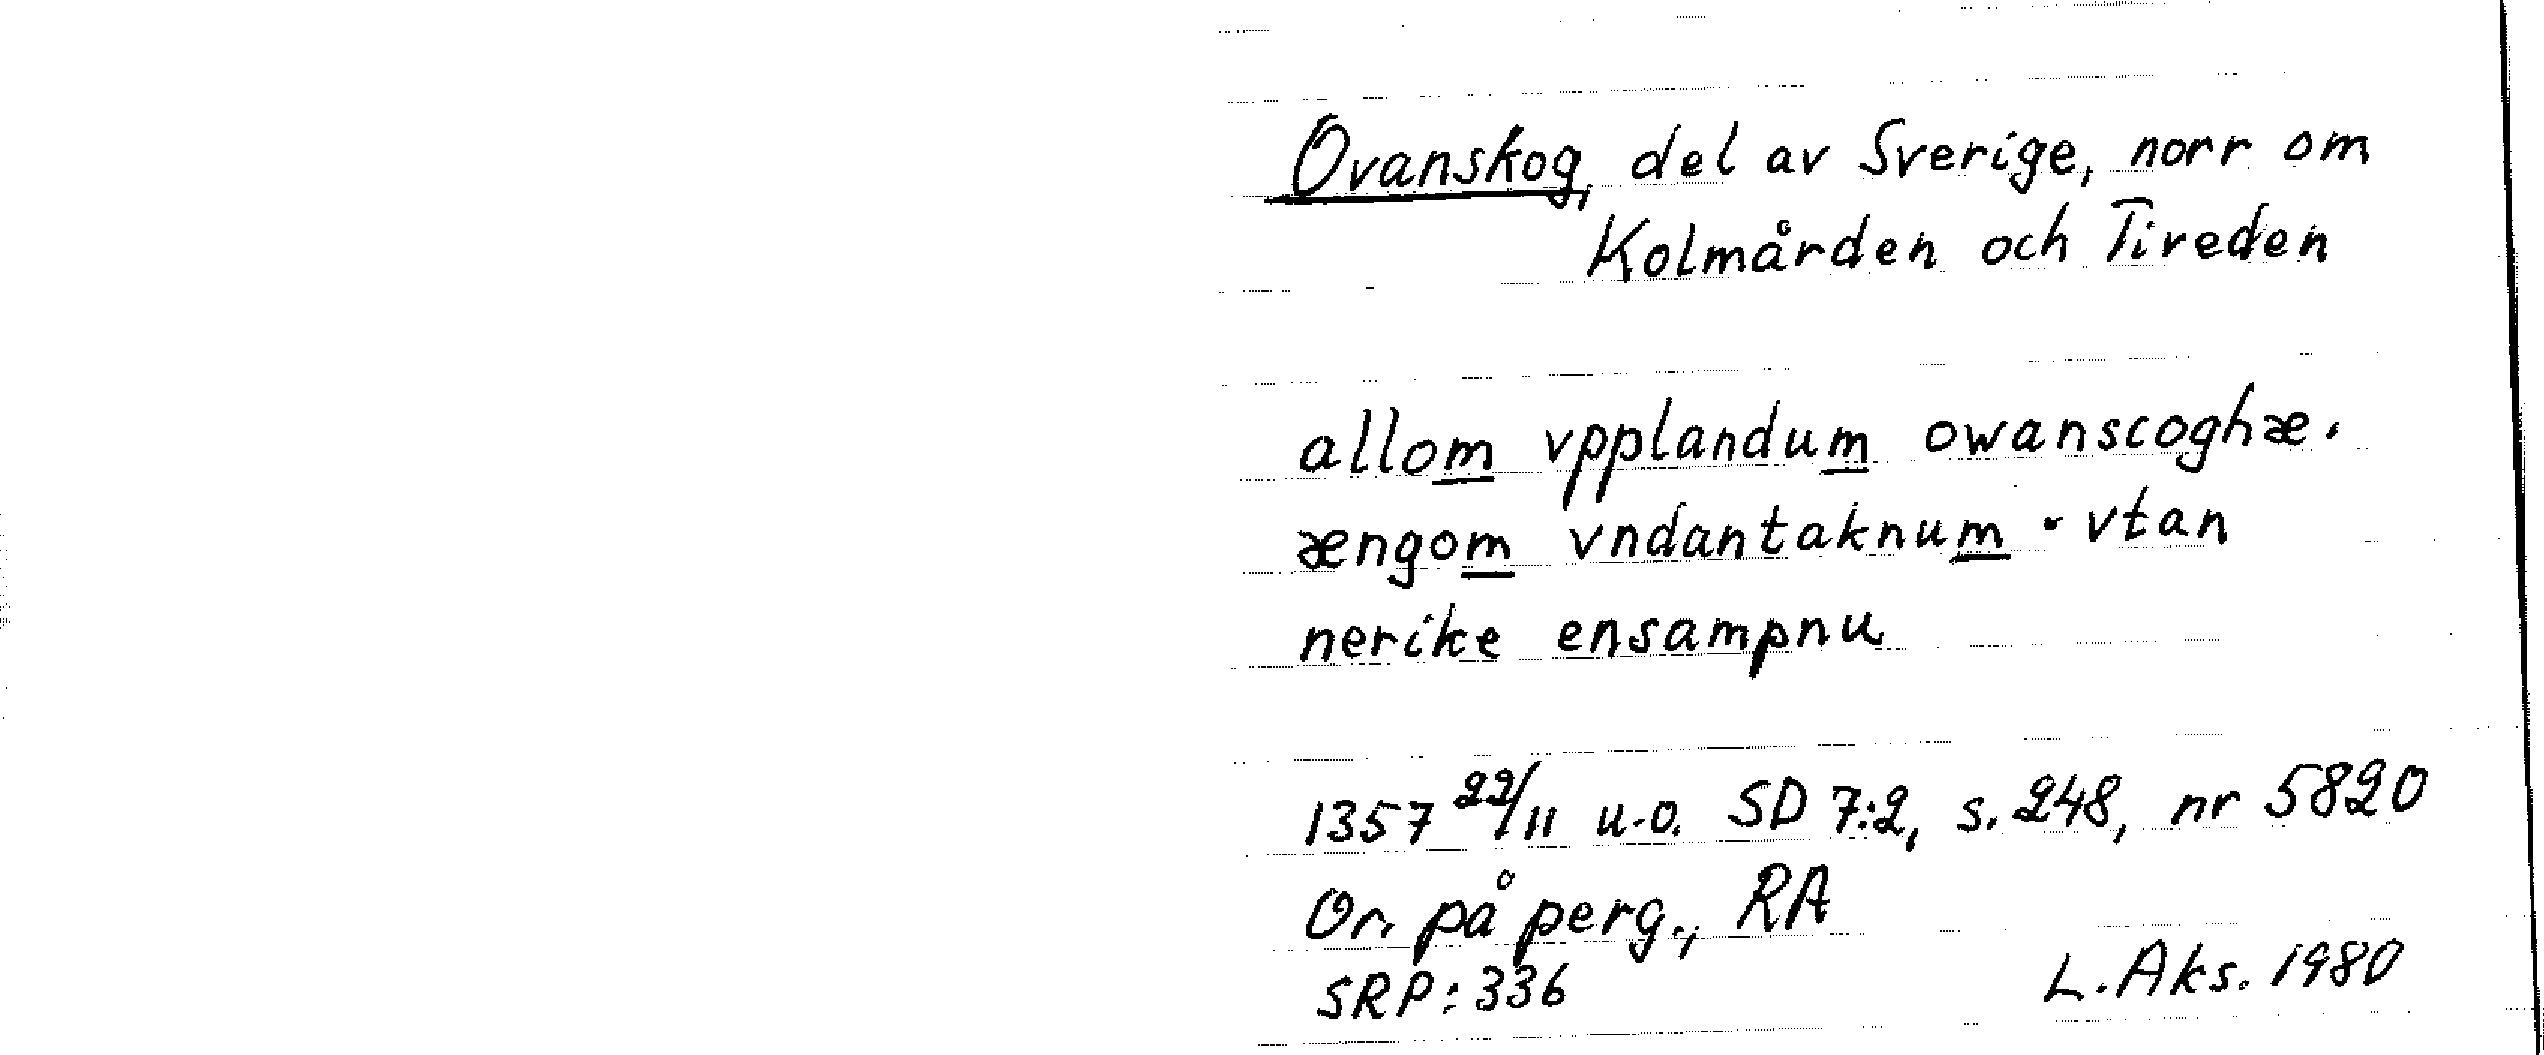 Ovanskog, del av Sverige, norr om
Kolmården och Tiveden
allom vpplandum owanscoghæ.
ængom vndantaknum · vtan
nerike ensampnu
1357 22/11 u.o. SD 7:2, s. 248, nr 5820
Or. på perg., RA
SRP: 336 L. Aks. 1980